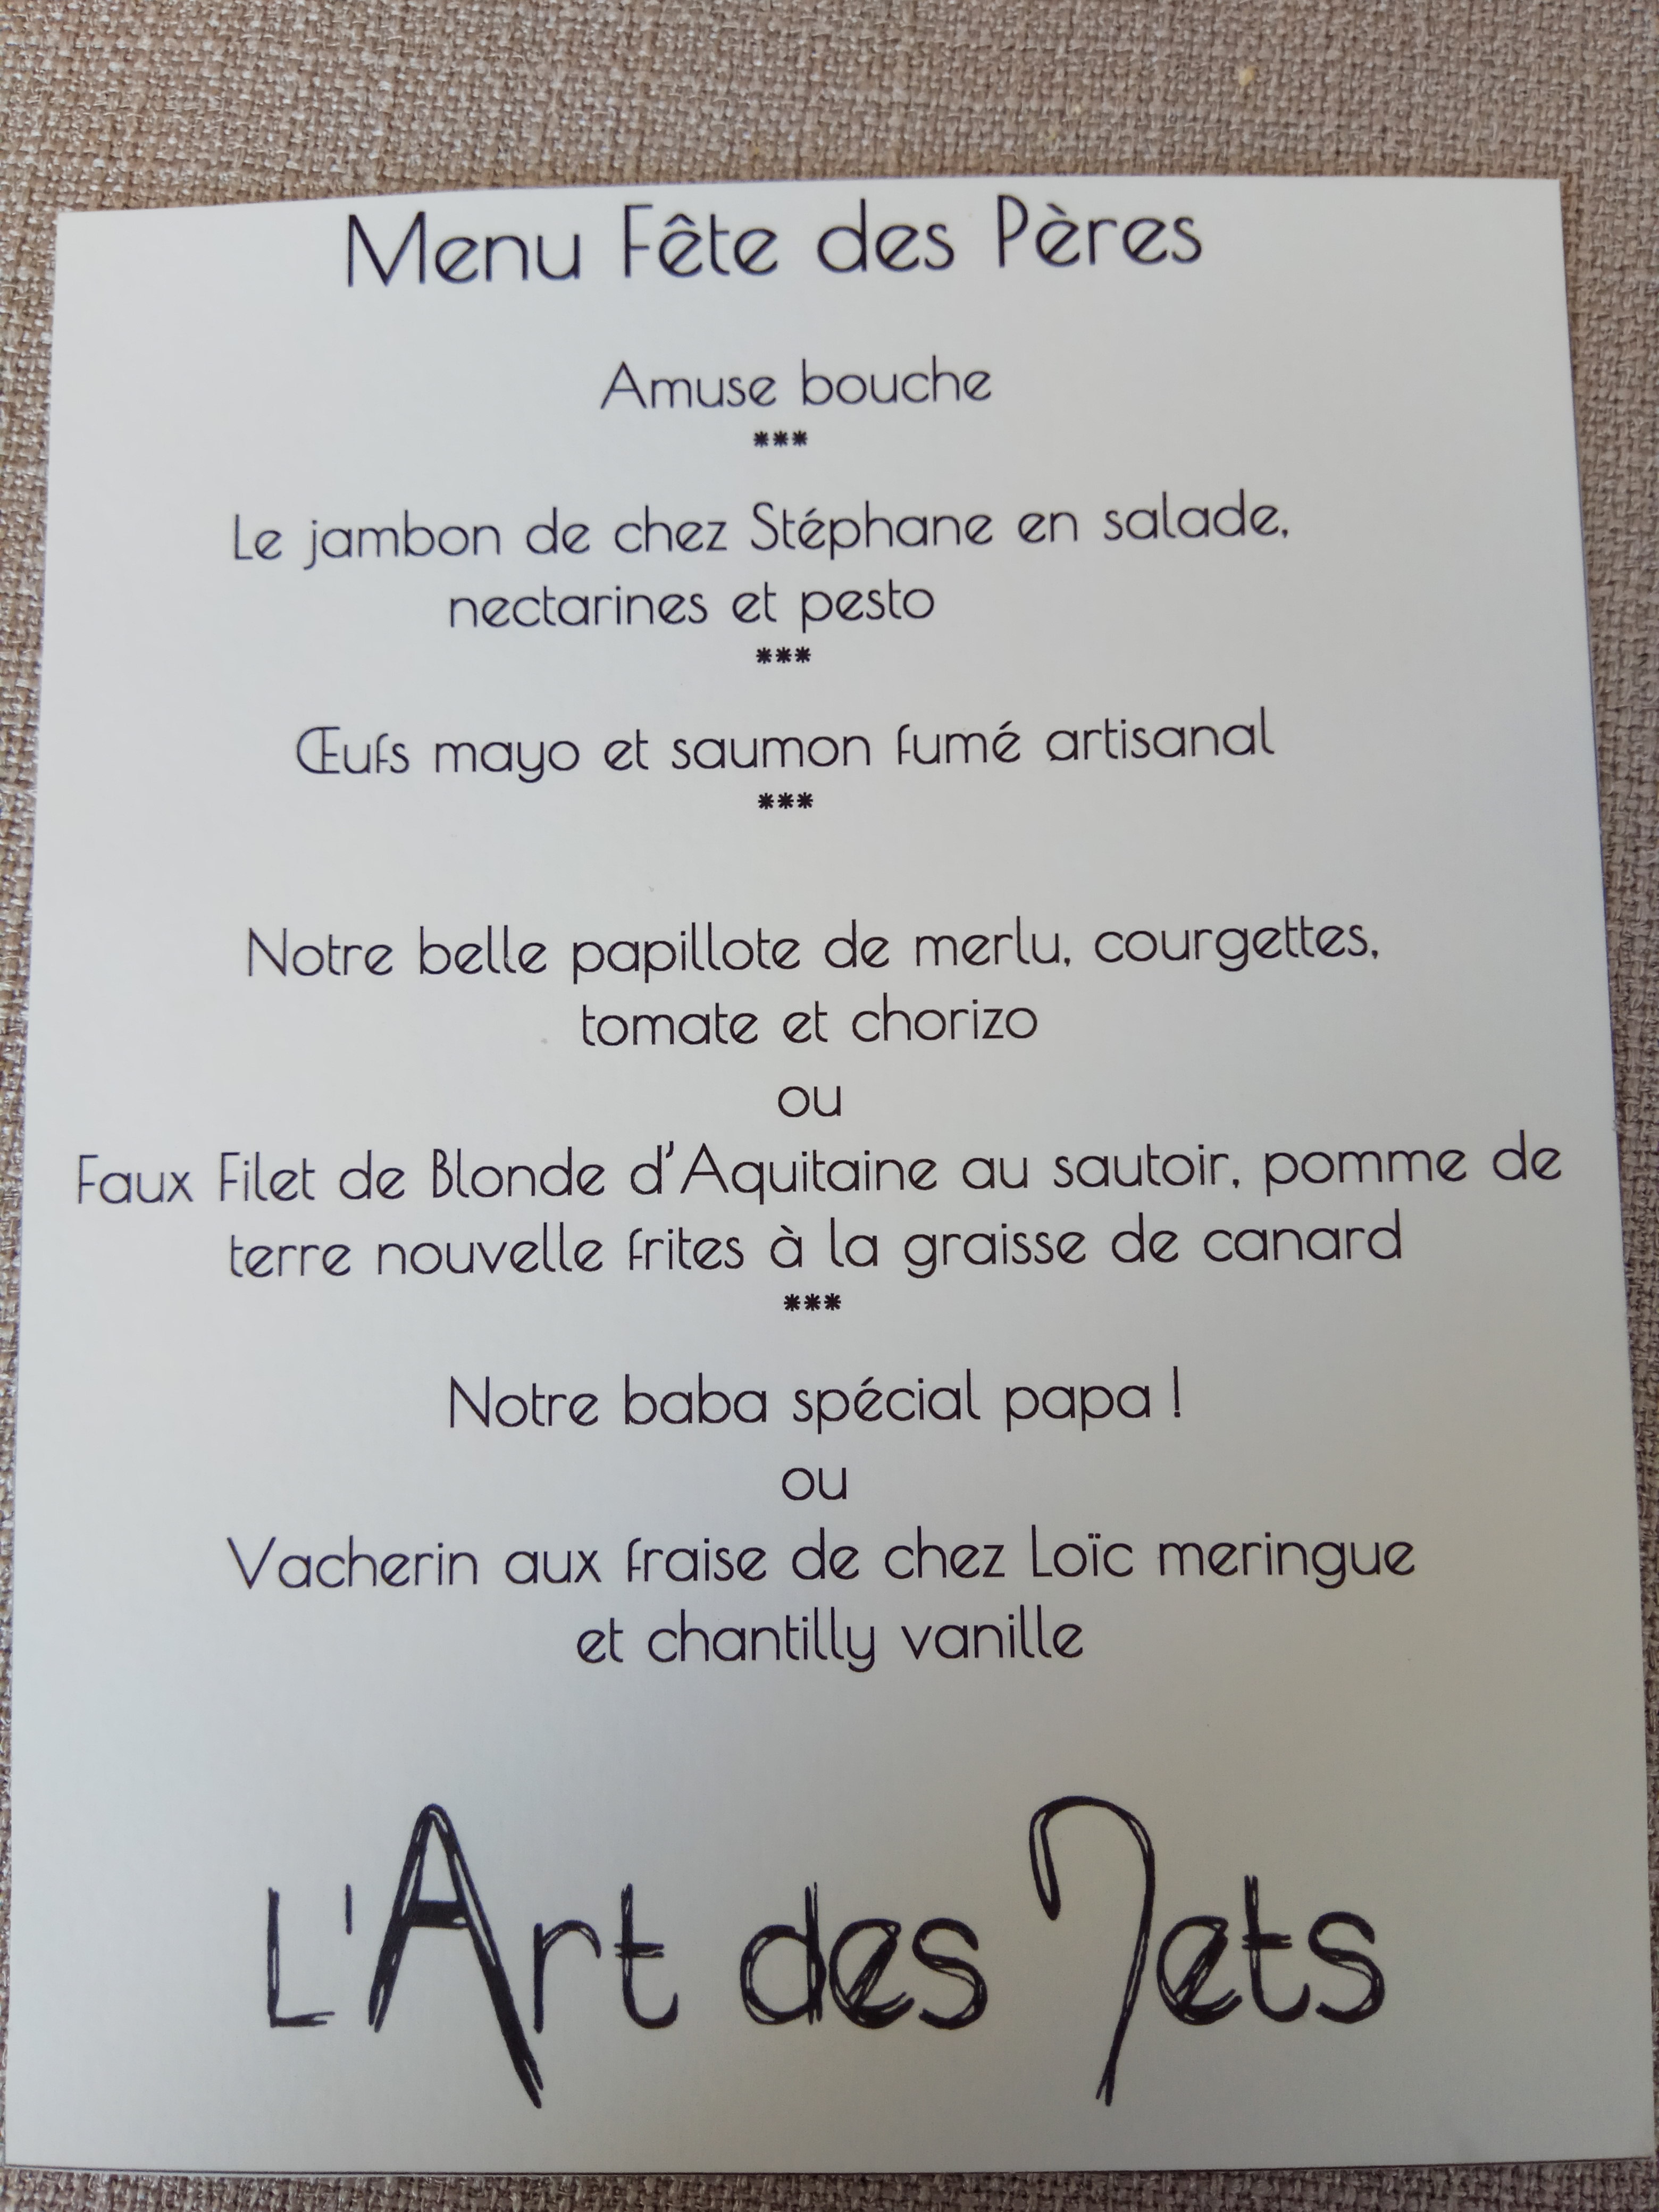 Menu Fête des Pères
Amuse bouche
***
Le jambon de chez Stéphane en salade,
nectarines et pesto
***
Œufs mayo et saumon fumé artisanal
***
Notre belle papillote de merlu, courgettes,
tomate et chorizo
ou
Faux Filet de Blonde d'Aquitaine au sautoir, pomme de
terre nouvelle frites à la graisse de canard
***
Notre baba spécial papa !
ou
Vacherin aux fraise de chez Loïc meringue
et chantilly vanille
L'Art des Mets